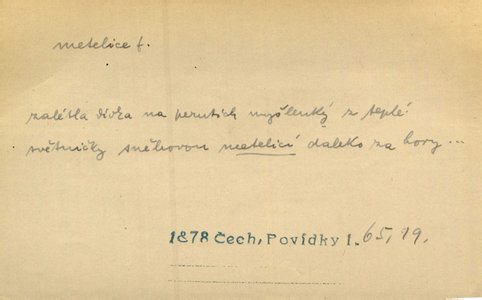 metelice f.
zalétla dívka na perutích myšlenky z teplé
světničky sněhovou metelicí daleko za hory ...
1878 Čech, Povídky I. 65, 19.